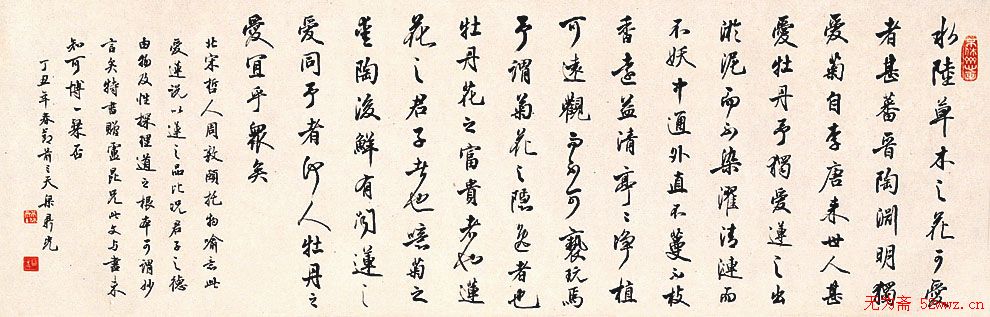 水陸草木之花可愛
者甚蕃晋陶淵明獨
愛菊自李唐来世人甚
愛牡丹予獨愛蓮之出
淤泥而不染濯清漣而
不妖中通外直不蔓不枝
香遠益清亭〻淨植
可遠觀而不可褻玩焉
予謂菊花之隱逸者也
牡丹花之富貴者也蓮
花之君子者也噫菊之
愛陶後鮮有聞蓮之
愛同予者何人牡丹之
愛宜乎衆矣
北宋哲人周敦頤托物喻志此
愛蓮説以蓮之品比况君子之德
由物及性探理道之根本可謂妙
言矣特書贈靈昆兄此文与書未
知可博一粲否
丁丑年春節前三天梁鼎光
无为斋 52wwz.cn